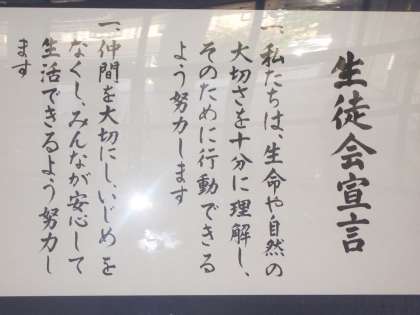 生徒会宣言
一、私たちは、生命や自然の
大切さを十分に理解し、
そのために行動できる
よう努力します
一、仲間を大切にし、いじめを
なくし、みんなが安心して
生活できるよう努力し
ます